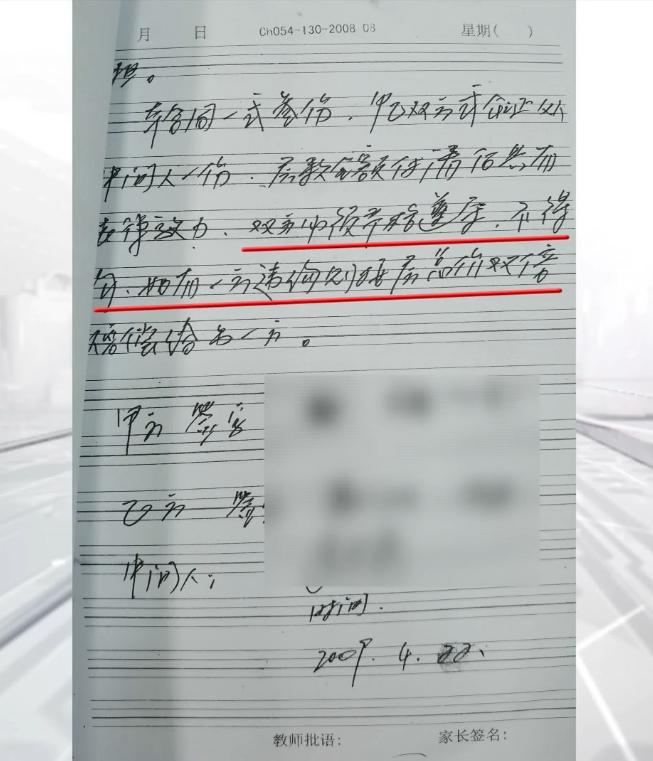 月 日 Ch054-130-2008 08 星期( )
担。
本合同一式叁份,甲乙双方
中间人一份。房款全额付清后具有
法律效力,双方必须严格遵守,不得
如有一方违约则按房总价双倍
赔偿给另一方。
甲方 签字
乙方 签
中间人:
时间.
2009. 4. 22.
教师批语: 家长签名: